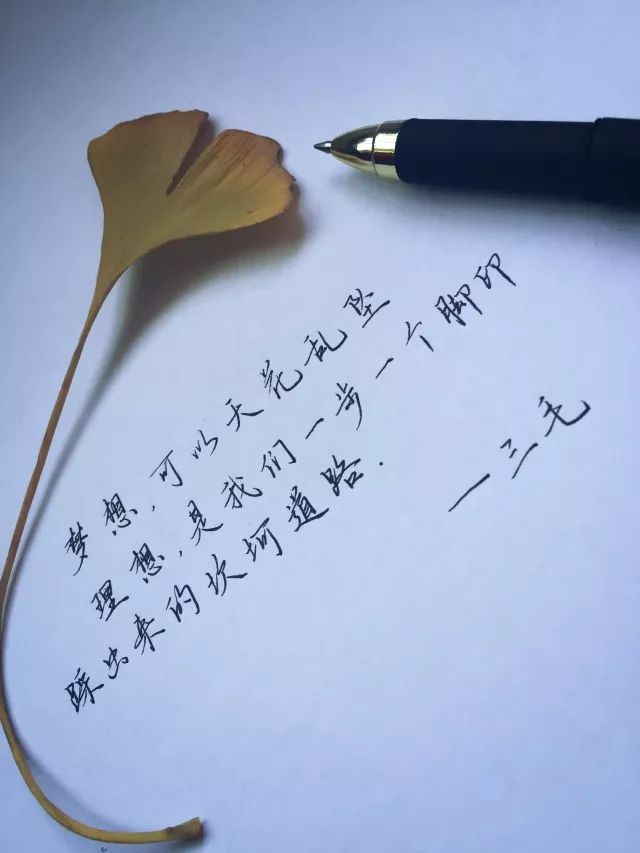 梦想,可以天花乱坠
理想,是我们一步一个脚印
踩出来的坎坷道路.
—三毛